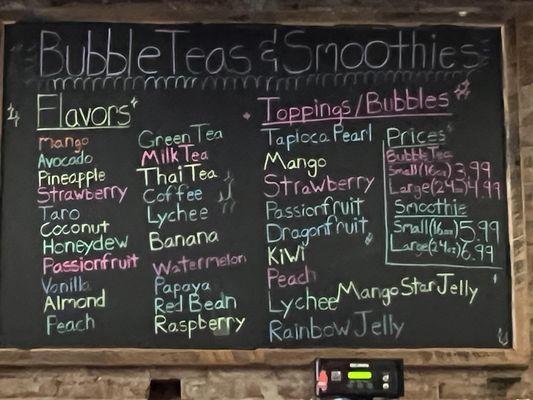 Bubble Teas & Smoothies
Flavors
Mango
Avocado
Pineapple
Strawberry
Taro
Coconut
Honeydew
Passionfruit
Vanilla
Almond
Peach
Green Tea
Milk Tea
Thai Tea
Coffee
Lychee
Banana
Watermelon
Papaya
Red Bean
Raspberry
Toppings/Bubbles
Tapioca Pearl
Mango
Strawberry
Passionfruit
Dragonfruit
Kiwi
Peach
Lychee
Mango Star Jelly
Rainbow Jelly
Prices
Bubble Tea
Small (16oz) 3.99
Large (24oz) 4.99
Smoothie
Small (16oz) 5.99
Large (24oz) 6.99